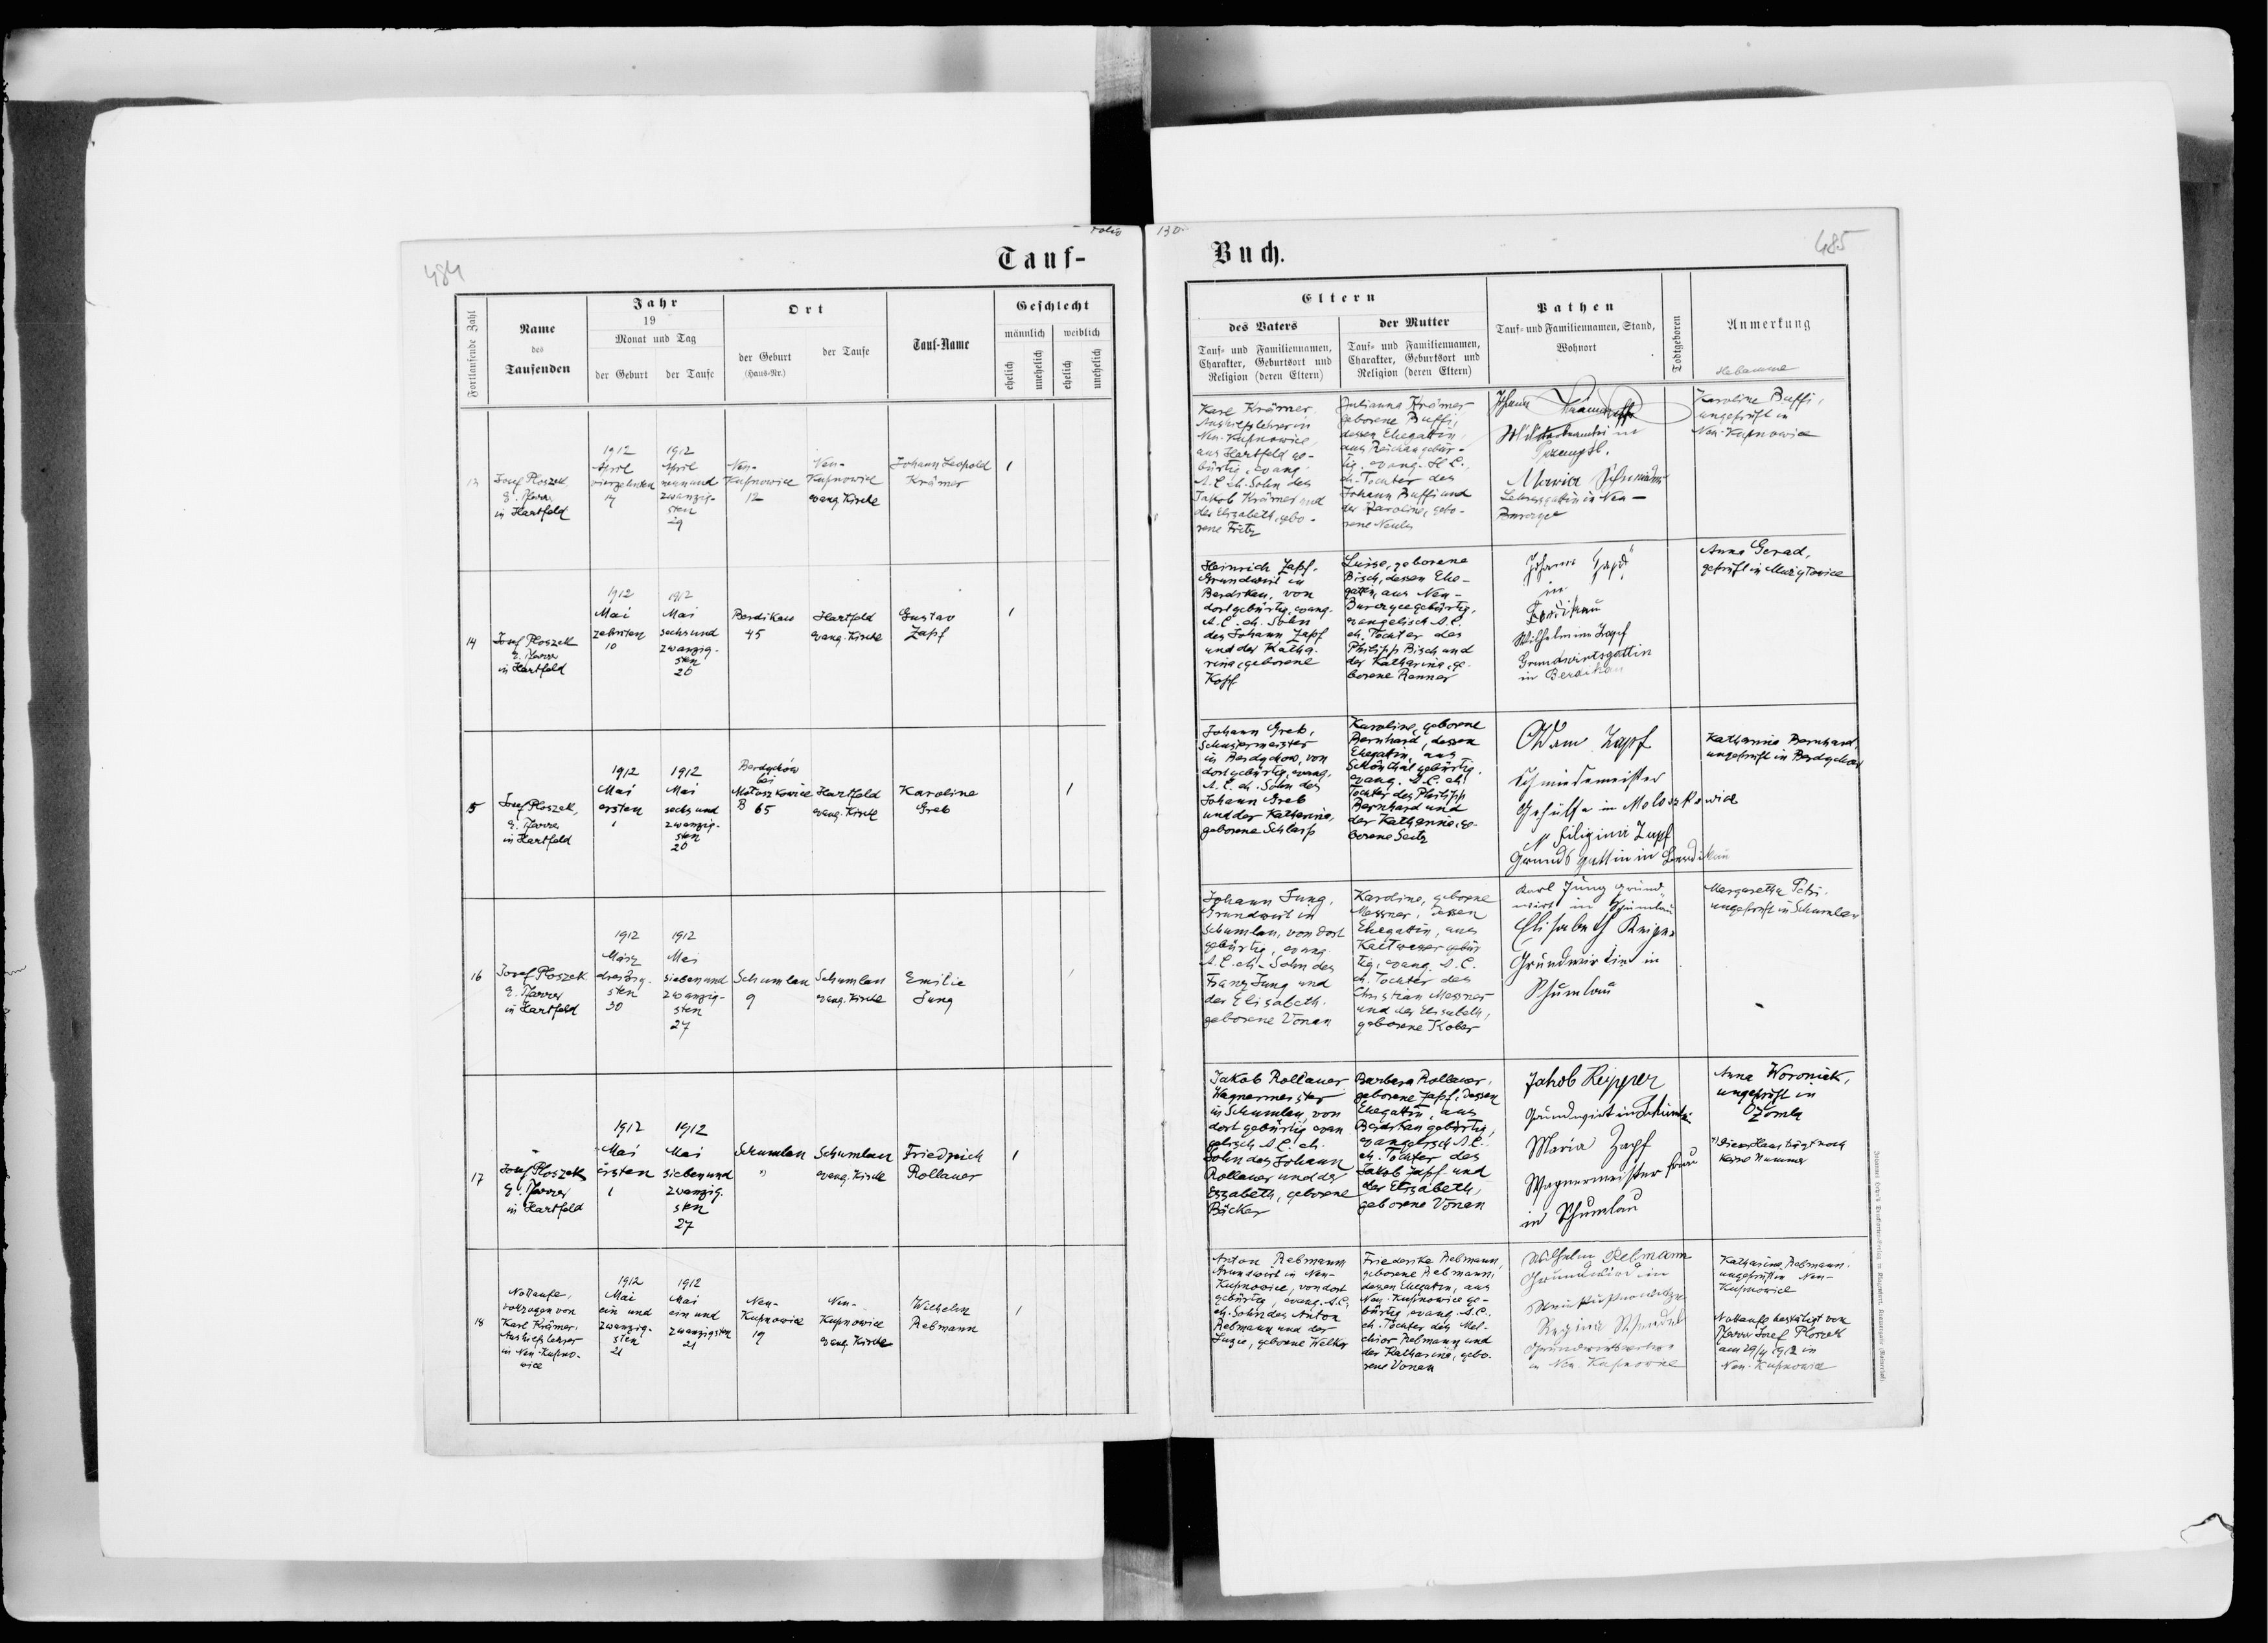 Folio 130
484
485
Tauf-
Buch.
Fortlaufende Zahl
Name
des
Taufenden
Jahr
19
Monat und Tag
der Geburt
der Taufe
Ort
der Geburt
(Haus-Nr.)
der Taufe
Tauf-Name
Geschlecht
männlich
weiblich
ehelich
unehelich
ehelich
unehelich
Eltern
des Vaters
Tauf- und Familiennamen,
Charakter, Geburtsort und
Religion (deren Eltern)
der Mutter
Tauf- und Familiennamen,
Charakter, Geburtsort und
Religion (deren Eltern)
Pathen
Tauf- und Familiennamen, Stand,
Wohnort
Todtgeboren
Anmerkung
Hebamme
13
Josef Ploszek
E. Pfarrer
in Hartfeld
1912
April
vierzehnten
14
1912
April
neunund
zwanzig-
sten
29
Neu-
Kupnowice
12
Neu-
Kupnowice
evang. Kirche
Johann Leopold
Krämer
1
Karl Krämer,
Aushilfslehrer in
Neu-Kupnowice,
aus Hartfeld ge-
bürtig, evang.
A.C. eh. Sohn des
Jakob Krämer und
der Elisabeth, gebo-
rene Fritz
Julianna Krämer
geborene Buffi,
dessen Ehegattin,
aus Reichau gebür-
tig, evang. H.C.,
eh. Tochter des
Johann Buffi und
der Karoline, gebo-
rene
Johann
in
Przemyśl.
Maria Schneider
Lehrersgattin in Neu-
Burczyce
Karoline Buffi,
ungeprüft in
Neu-Kupnowice
14
Josef Ploszek
E. Pfarrer
in Hartfeld
1912
Mai
zehnten
10
1912
Mai
sechsund
zwanzig-
sten
26
Berdikau
45
Hartfeld
evang. Kirche
Gustav
Zapf
1
Heinrich Zapf,
Grundwirt in
Berdikau, von
dort gebürtig, evang.
A.C. eh. Sohn
des Johann Zapf
und der Katha-
rina, geborene
Kopf
Luise, geborene
Bisch, dessen Ehe-
gattin, aus Neu-
Burczyce gebürtig,
evangelisch A.C.
eh. Tochter des
Philipp Bisch und
der Katharina, ge-
borene Renner
Johann Zapf
in
Berdikau
Wilhelmine Zapf
Grundwirtsgattin
in Berdikau
Anna Gerad,
geprüft in Mużyłowice
15
Josef Ploszek,
E. Pfarrer
in Hartfeld
1912
Mai
ersten
1
1912
Mai
sechsund
zwanzig-
sten
26
Berdychów
bei
Małoszkowice
B 65
Hartfeld
evang. Kirche
Karoline
Greb
1
Johann Greb,
in Berdychow, von
dort gebürtig, evang.
A.C. eh. Sohn des
Johann Greb
und der Katharina,
geborene Schlarp
Karoline, geborene
Bernhard, dessen
Ehegattin, aus
Schönthal gebürtig,
evang. A.C. eh.
Tochter des Philipp
Bernhard und
der Katharina, ge-
borene Seitz
Adam Zapf
Schmiedemeister
Gehülfe in Moloszkowice
Filipina Zapf
Grundsgattin in Berdikau
Katharina Bernhard,
ungeprüft in Berdychow
16
Josef Ploszek
E. Pfarrer
in Hartfeld
1912
März
dreißig-
sten
30
1912
Mai
siebenund
zwanzig-
sten
27
Schumlau
9
Schumlau
evang. Kirche
Emilie
Jung
1
Johann Jung,
Grundwirt in
Schumlau, von dort
gebürtig, evang.
A.C. eh. Sohn des
Franz Jung und
der Elisabeth,
geborene Vonau
Karoline, geborene
Messner, dessen
Ehegattin, aus
Kaltwasser gebür
tig, evang. A.C.
eh. Tochter des
Christian Messner
und der Elisabeth,
geborene Kober
Karl Jung Grund-
wirt in Schumlau
Elisabeth
Grundwirtin in
Schumlau
Margaretha Petri,
ungeprüft in Schumlau
17
Josef Ploszek
E. Pfarrer
in Hartfeld
1912
Mai
ersten
1
1912
Mai
siebenund
zwanzig-
sten
27
Schumlau
*)
Schumlau
evang. Kirche
Friedrich
Rollauer
1
Jakob Rollauer
Wagnermeister
in Schumlau, von
dort gebürtig, evan
gelisch A.C. eh.
Sohn des Johann
Rollauer und der
Elisabeth, geborene
Bäcker
Barbara Rollauer,
geborene Zapf, dessen
Ehegattin, aus
Berdikau gebürtig,
evangelisch A.C.
eh. Tochter des
Jakob Zapf und
der Elisabeth,
geborene Vonau
Jakob Kipper
Grundwirt in Schumlau
Maria Zapf
Wagnermeister frau
in Schumlau
Anna Woroniak,
ungeprüft in
Ożomla
*) Dieses Haus trägt noch
keine Nummer
18
Nottaufe,
vollzogen von
Karl Krämer,
Aushilfslehrer
in Neu-Kupno-
wice
1912
Mai
ein und
zwanzig-
sten
21
1912
Mai
ein und
zwanzigsten
21
Neu-
Kupnowice
19
Neu-
Kupnowice
evang. Kirche
Wilhelm
Rebmann
1
Anton Rebmann
Grundwirt in Neu-
Kupnowice, von dort
gebürtig, evang. A.C.,
eh. Sohn des Anton
Rebmann und der
Luzie, geborene Welker
Friederike Rebmann,
geborene Rebmann,
dessen Ehegattin, aus
Neu-Kupnowice ge-
bürtig, evang. A.C.
eh. Tochter des Mel-
chior Rebmann und
der Katharina, gebo-
rene Vonau
Wilhelm Rebmann
Grundwird in
Neu Kupnowice
Regina
in Neu Kupnowice
Katharina Rebmann,
ungeprüft in Neu-
Kupnowice
Nottaufe bestätigt von
Pfarrer Josef Ploszek
am 29/4 1912 in
Neu-Kupnowice